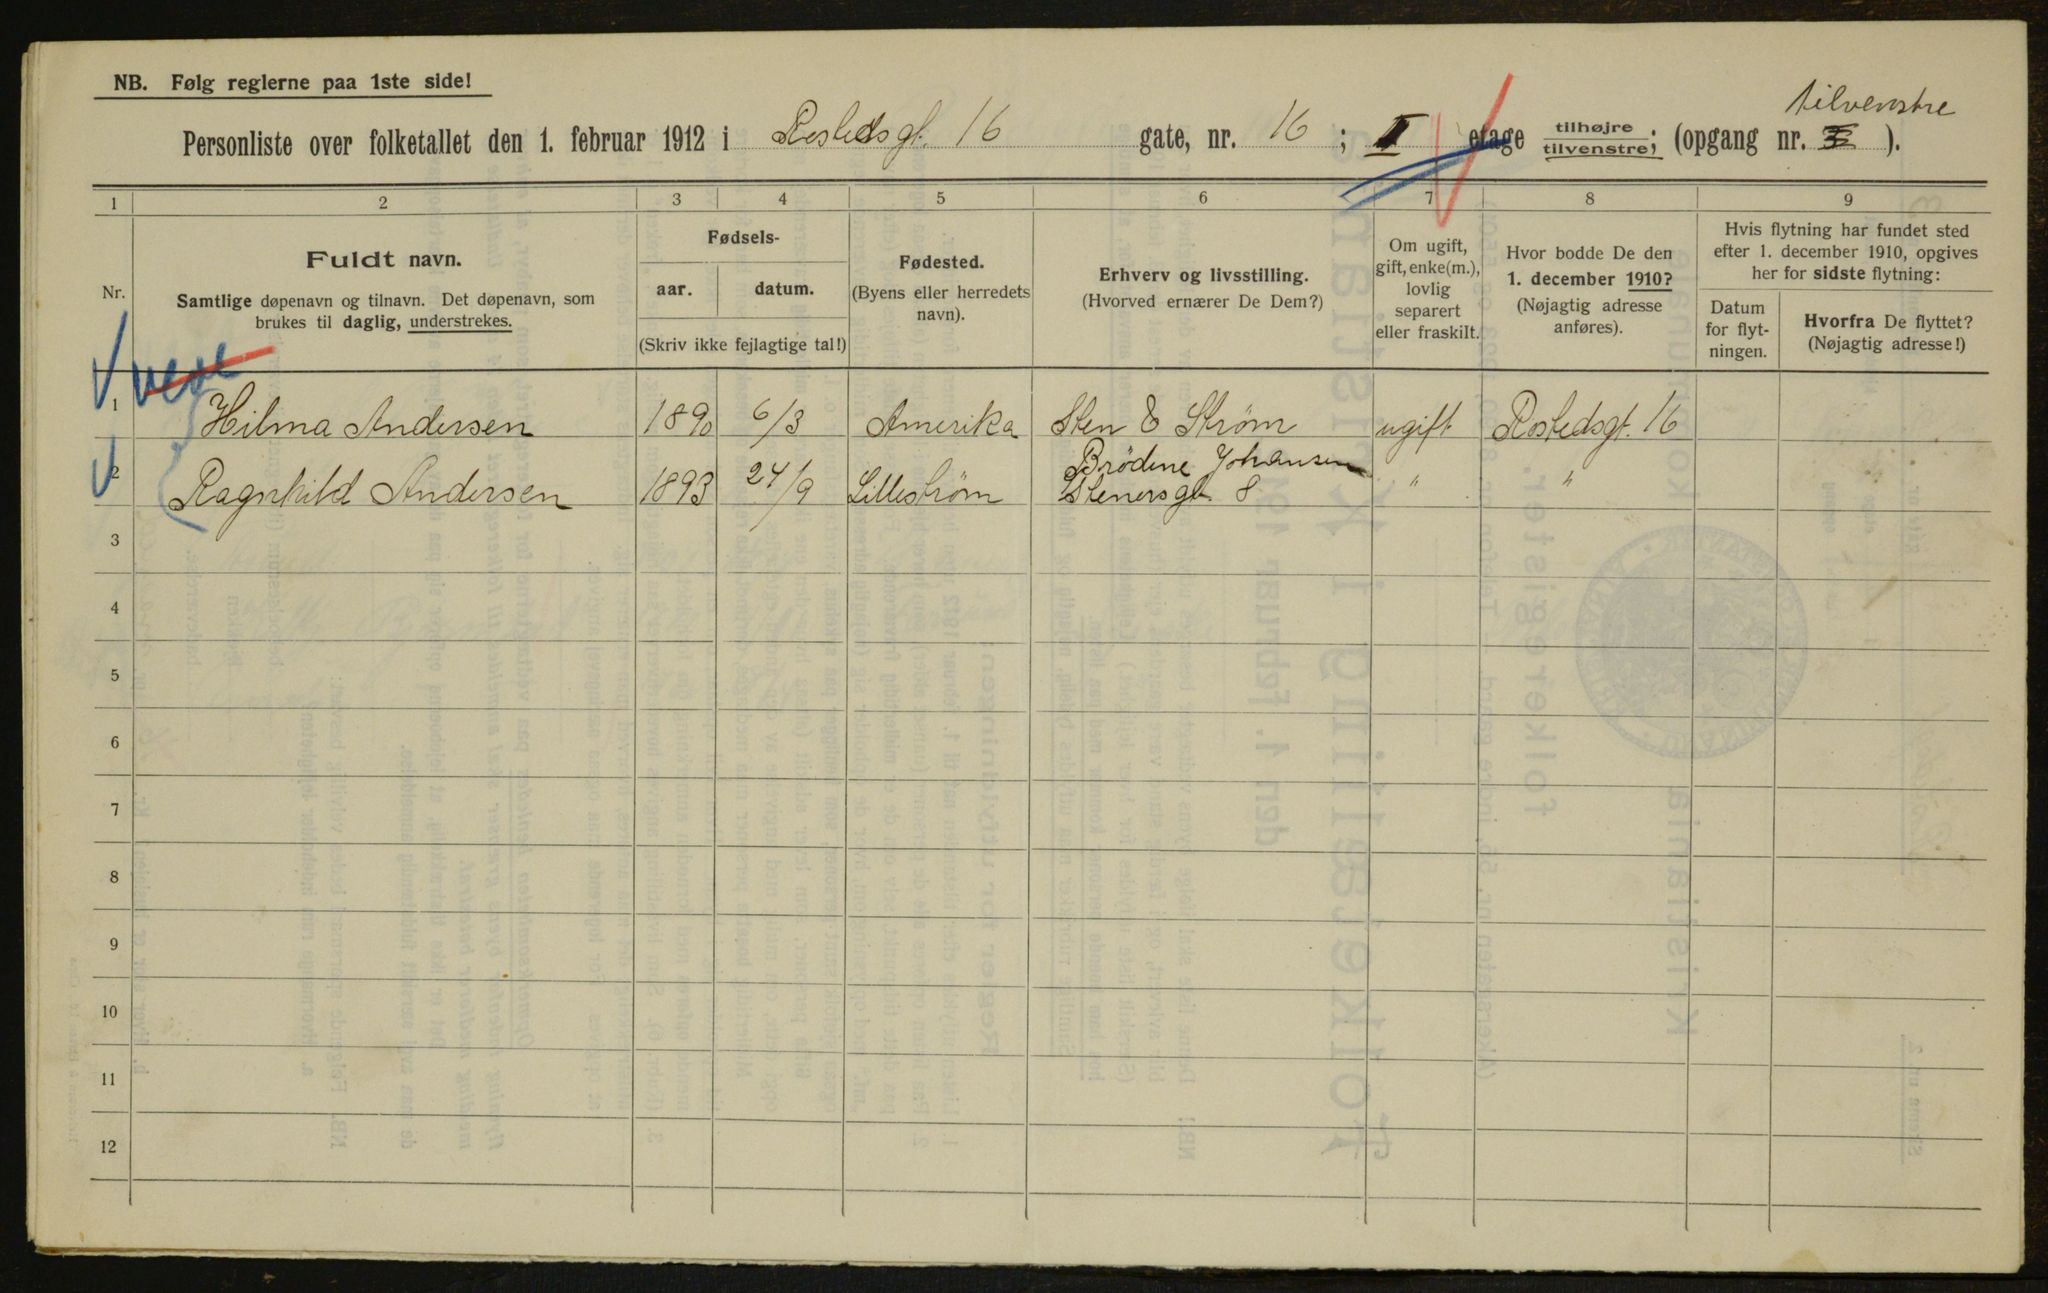 NB. Følg reglerne paa 1ste side!
tilvenstre
Personliste over folketallet den 1. februar 1912 i Rostedsgt. 16 gate, nr. 16 ; II etage tilhøjre tilvenstre; (opgang nr. ).
1 2 3 4 5 6 7 8 9
Nr.
Fuldt navn.
Samtlige døpenavn og tilnavn. Det døpenavn, som
brukes til daglig, understrekes.
Fødsels-
aar. datum.
(Skriv ikke fejlagtige tal!)
Fødested.
(Byens eller herredets
navn).
Erhverv og livsstilling.
(Hvorved ernærer De Dem?)
Om ugift,
gift, enke(m.),
lovlig
separert
eller fraskilt.
Hvor bodde De den
1. december 1910?
(Nøjagtig adresse
anføres).
Hvis flytning har fundet sted
efter 1. december 1910, opgives
her for sidste flytning:
Datum
for flyt-
ningen.
Hvorfra De flyttet?
(Nøjagtig adresse!)
1 Hilma Andersen 1890 6/3 Amerika Sten & Strøm ugift Rostedsgt. 16
Brödene Johansen
2 Ragnhild Andersen 1893 24/9 Lilleström Stenersgt. 8 " "
3
4
5
6
7
8
9
10
11
12